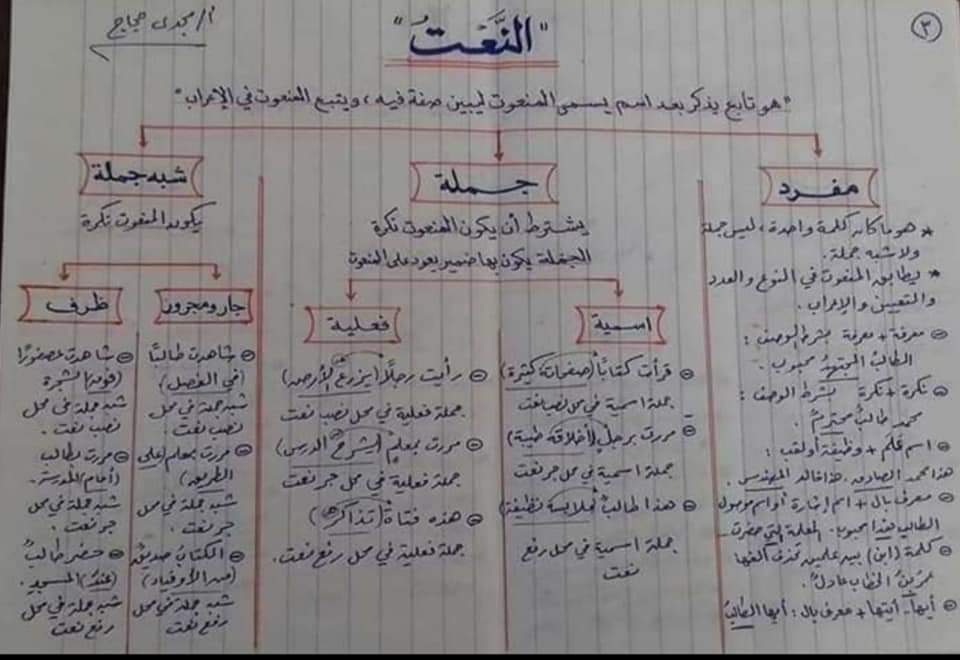 ٣
أ/ مجدى حجاج
"النَّعْتُ"
"هو تابع يذكر بعد اسم يسمى المنعوت ليبين صفة فيه، ويتبع المنعوت في الإعراب"
مفرد
* هو ما كان كلمة واحدة، ليس جملة
ولا شبه جملة.
* يطابق المنعوت في النوع والعدد
والتعيين والإعراب.
معرفة + معرفة بشرط الوصف:
الطالبُ المجتهدُ محبوب.
نكرة + نكرة بشرط الوصف:
محمد طالبٌ محترمٌ.
اسم علم + وظيفة أو لقب:
هذا محمد الصادق. هذا خالد المهندس.
معرف بال + اسم إشارة أو اسم موصول
الطالب هذا محبوب. المعلمة التي حضرت
كلمة (ابن) بين علمين تحذف ألفها
عمرُ بنُ الخطاب عادلٌ.
أيها - أيتها + معرف بال: أيها الطالبُ
جملة
يشترط أن يكون المنعوت نكرة
الجملة يكون بها ضمير يعود على المنعوت
اسمية
قرأت كتابًا (صفحاته كثيرة)
جملة اسمية في محل نصب نعت
مررت برجلٍ (أخلاقه طيبة)
جملة اسمية في محل جر نعت
هذا طالبٌ (ملابسه نظيفة)
جملة اسمية في محل رفع
نعت
فعلية
رأيت رجلًا (يزرع الأرض)
جملة فعلية في محل نصب نعت
مررت بمعلمٍ (يشرح الدرس)
جملة فعلية في محل جر نعت
هذه فتاة (تذاكر)
جملة فعلية في محل رفع نعت.
شبه جملة
يكون المنعوت نكرة
جار ومجرور
شاهدت طالبًا
(في الفصل)
شبه جملة في محل
نصب نعت.
مررت بمعلم (على
الطريق)
شبه جملة في محل
جر نعت.
الكتابُ صديقٌ
(من الأوفياء)
شبه جملة في محل
رفع نعت
ظرف
شاهدت عصفورًا
(فوق) الشجرة
شبه جملة في محل
نصب نعت.
مررت بطالب
(أمام) المدرسة.
شبه جملة في محل
جر نعت.
حضر طالبٌ
(عند) المسجد.
شبه جملة في محل
رفع نعت